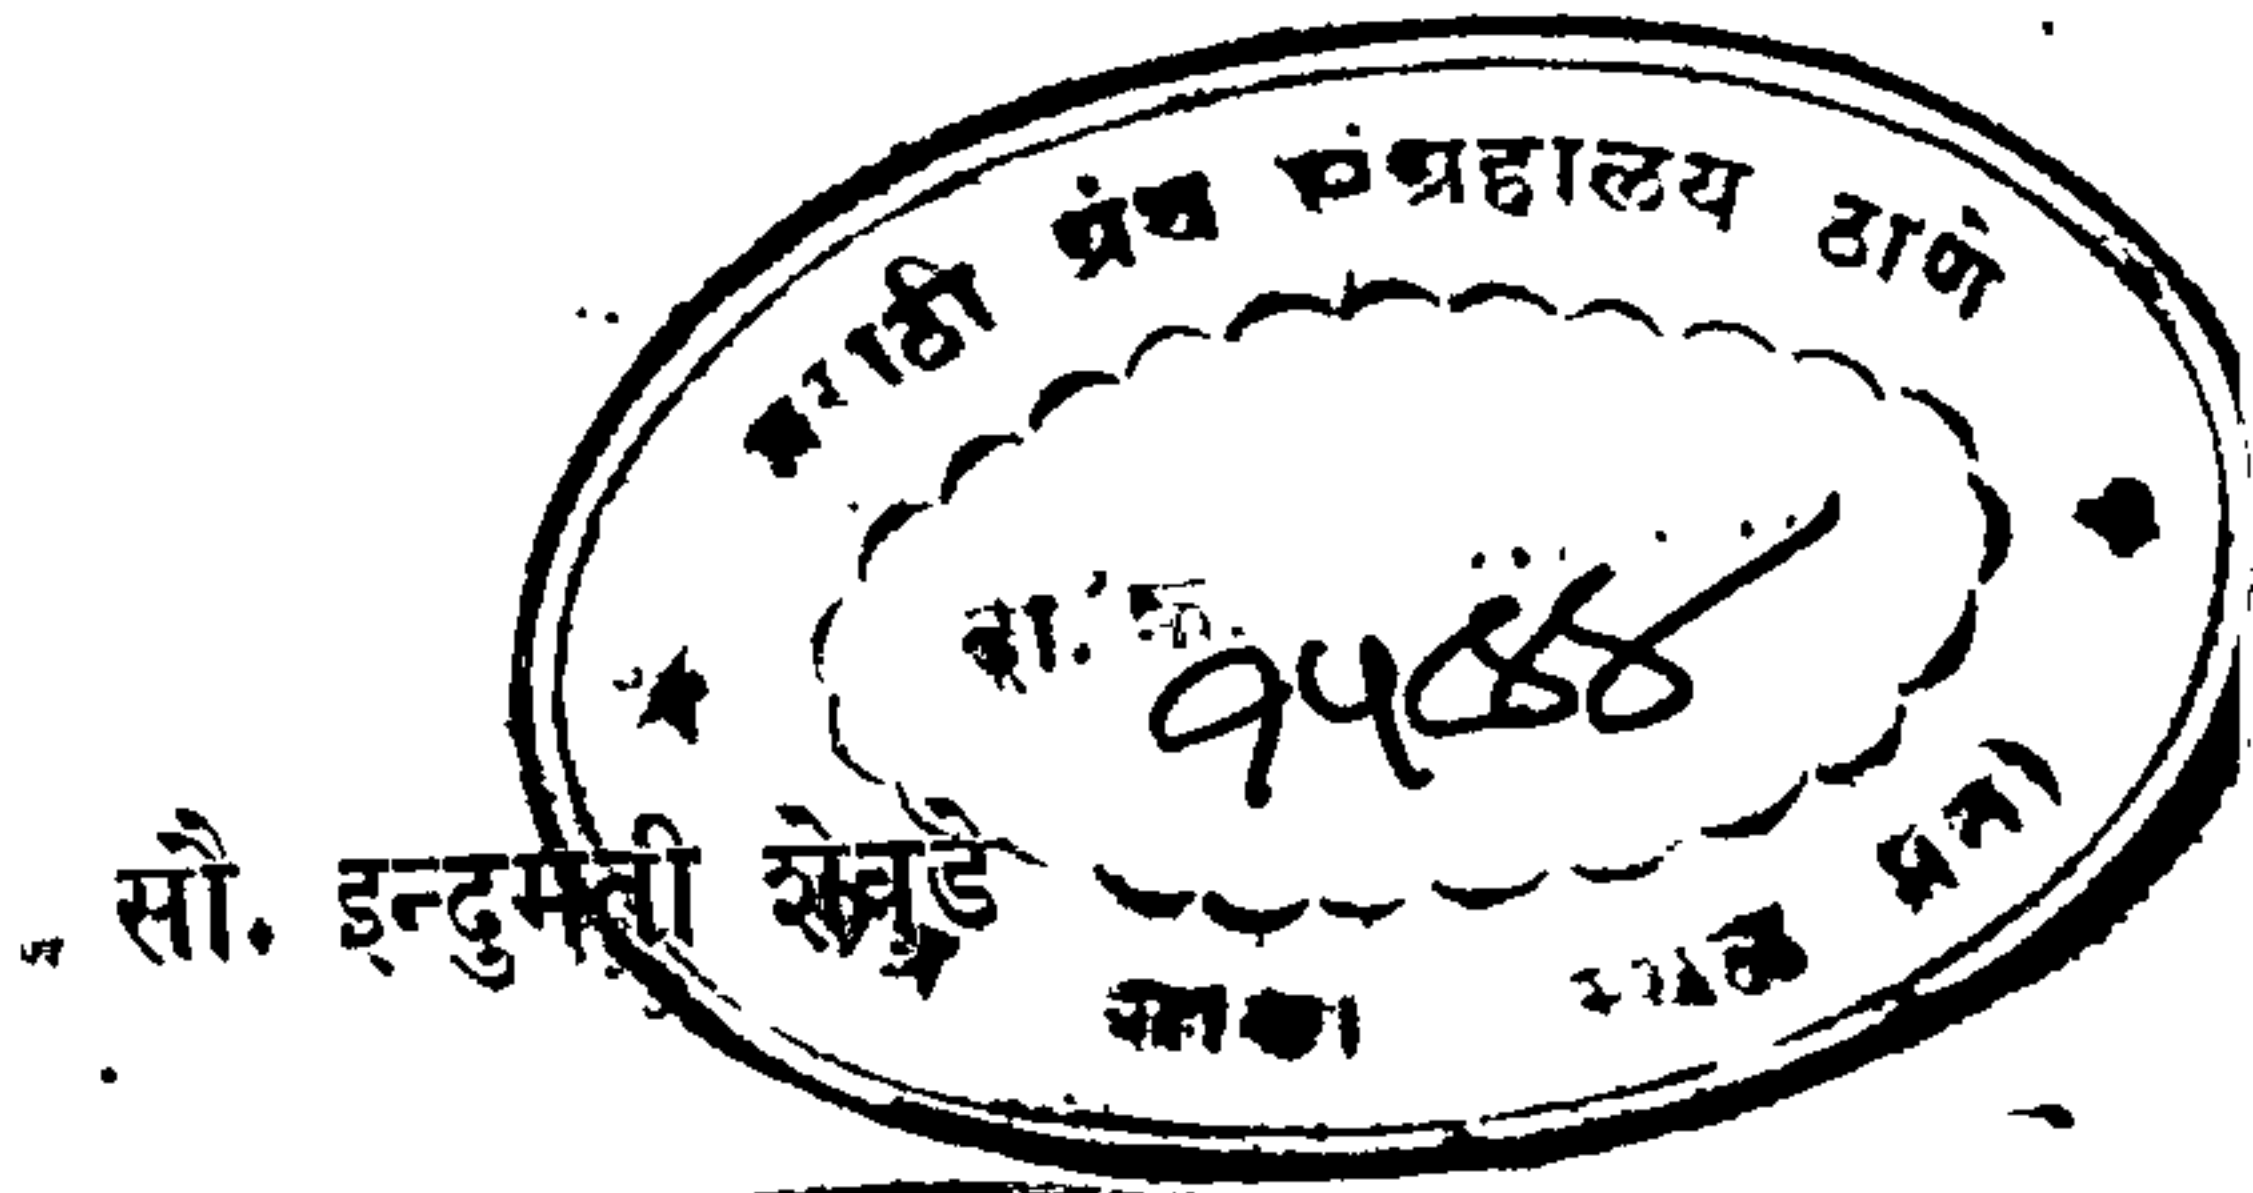 मराठी ग्रंथ संग्रहालय ठाणे
वा. क्र.
१५४४४
सौ. इन्दुमती शेवडे
शाखा